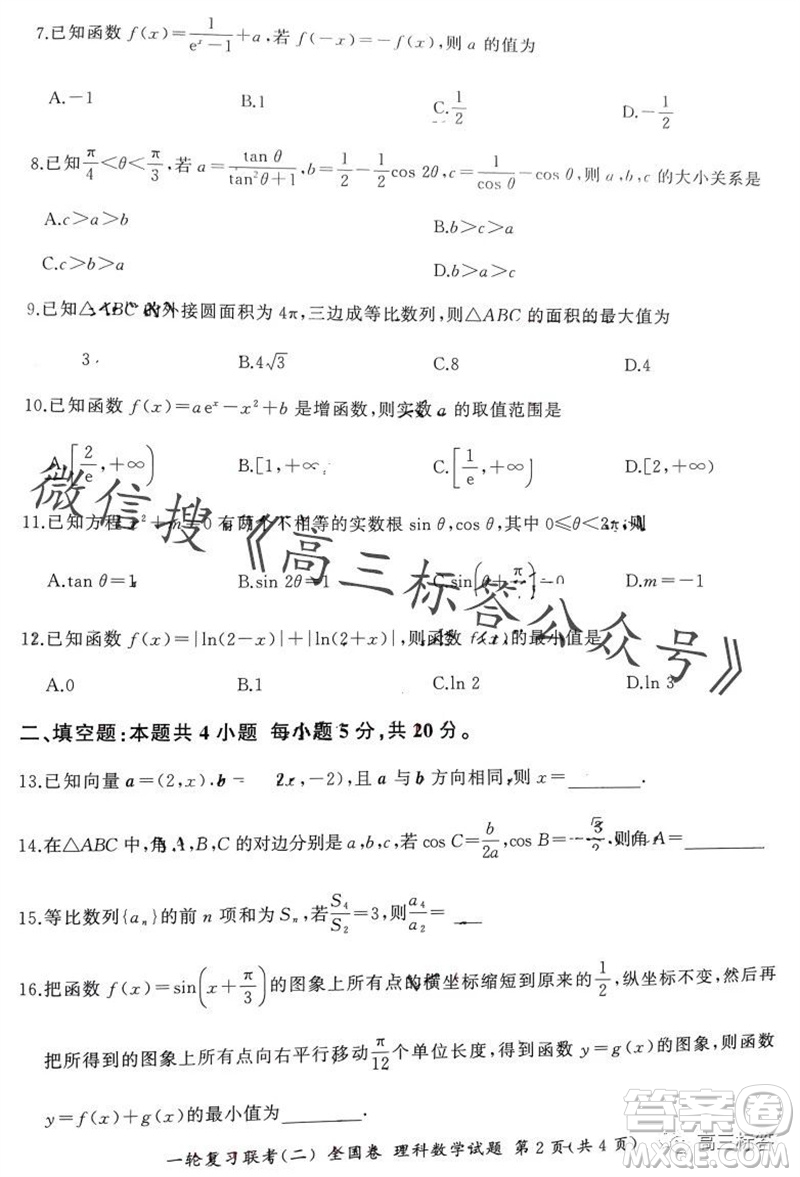 7.已知函数 f(x)=1/(eˣ-1)+a,若 f(-x)=-f(x),则 a 的值为
A.-1 B.1 C.1/2 D.-1/2
8.已知π/4<θ<π/3,若 a=tan θ/(tan²θ+1),b=1/2-1/2cos 2θ,c=1/cos θ-cos θ,则 a,b,c 的大小关系是
A.c>a>b B.b>c>a
C.c>b>a D.b>a>c
9.已知△ABC 的外接圆面积为 4π,三边成等比数列,则△ABC 的面积的最大值为
3 B.4√3 C.8 D.4
10.已知函数 f(x)=aeˣ-x²+b 是增函数,则实数 a 的取值范围是
A.[2/e,+∞) B.[1,+∞) C.[1/e,+∞) D.[2,+∞)
11.已知方程 0 有两个不相等的实数根 sin θ,cos θ,其中 0≤θ<2
A.tan θ=1 B.sin 2θ=1 C.sin(θ+π D.m=-1
12.已知函数 f(x)=|ln(2-x)|+|ln(2+x)|,则函数 f(x)的最小值是
A.0 B.1 C.ln 2 D.ln 3
二、填空题:本题共 4 小题 每小题 5 分,共 20 分。
13.已知向量 a=(2,x).b= 2x,-2),且 a 与 b 方向相同,则 x=______.
14.在△ABC 中,角 A,B,C 的对边分别是 a,b,c,若 cos C=b/2a,cos B= 则角 A=______
15.等比数列{aₙ}的前 n 项和为 Sₙ,若S₄/S₂=3,则a₄/a₂=
16.把函数 f(x)=sin(x+π/3)的图象上所有点的横坐标缩短到原来的1/2,纵坐标不变,然后再
把所得到的图象上所有点向右平行移动π/12个单位长度,得到函数 y=g(x)的图象,则函数
y=f(x)+g(x)的最小值为______.
一轮复习联考(二) 全国卷 理科数学试题 第 2 页(共 4 页)
微信搜《高三标答公众号》
答案圈
高三标答